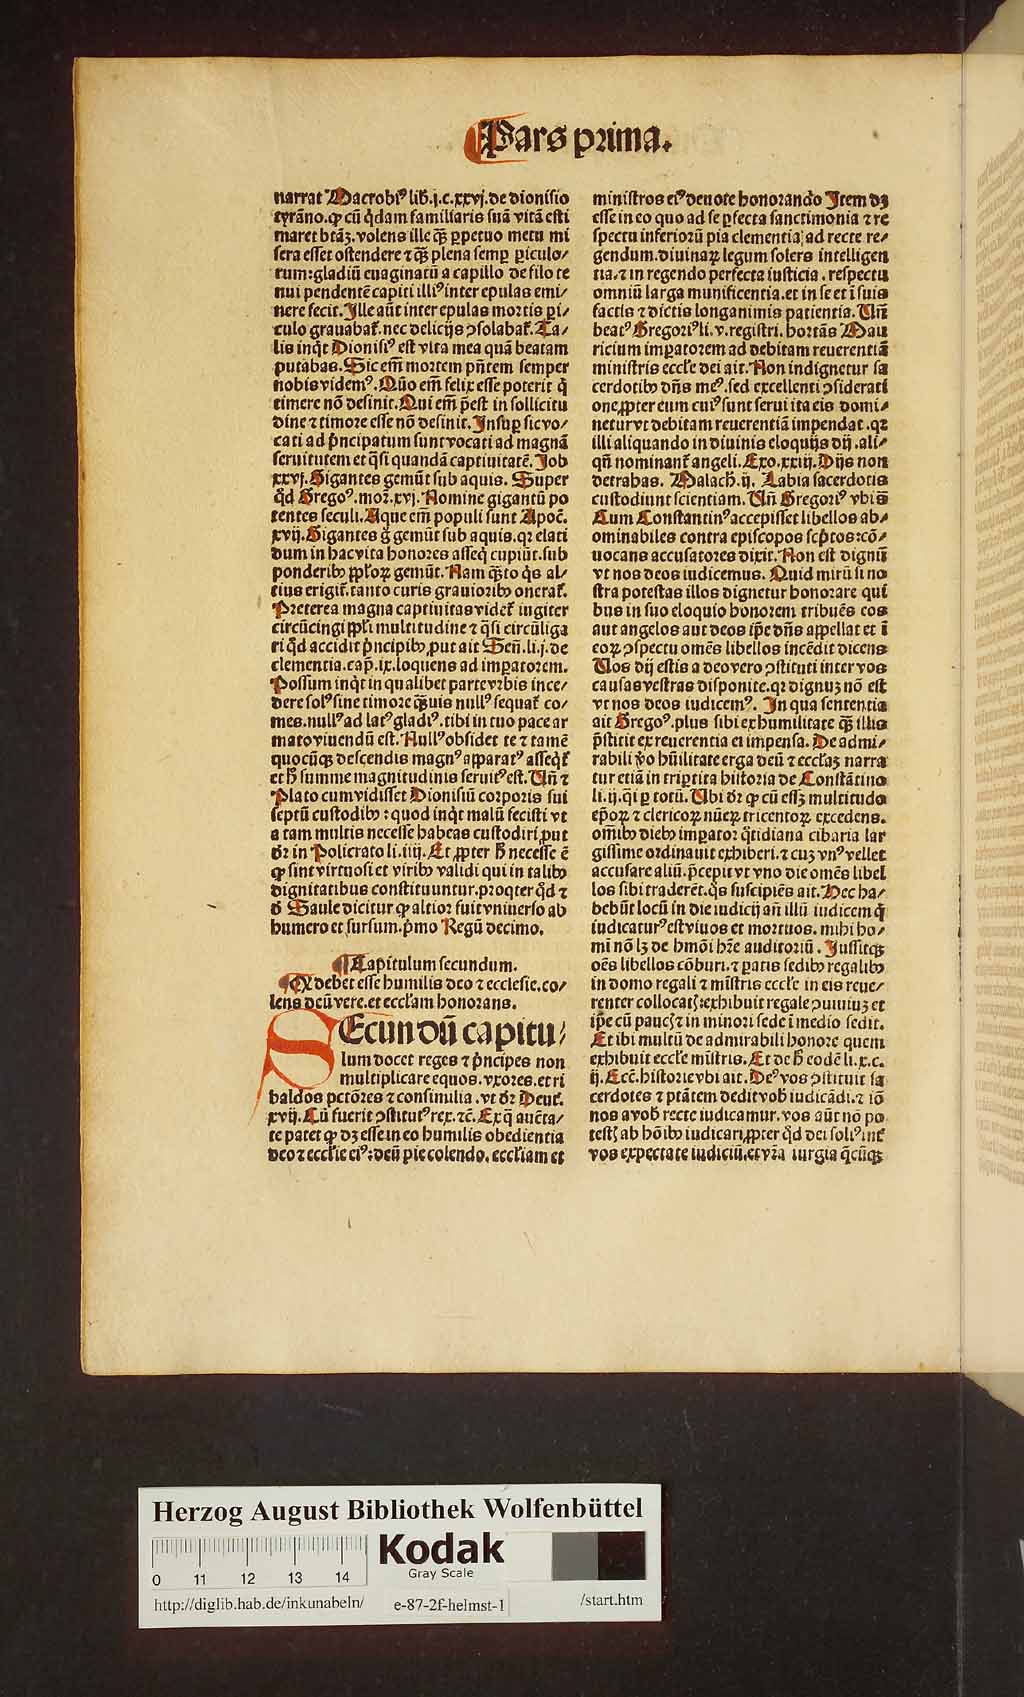 Pars prima.
narrat Macrobiꝰ lib̃.j.c.xxvj.de dionisio
tyrãno.ꝙ cũ q̇dam familiaris suã vitã esti
maret btãꝫ.volens ille qͣꝫ ꝑpetuo metu mi
sera esset ostendere ⁊ qͣꝫ plena semꝑ ꝑiculo⸗
rum:gladiũ euaginatũ a capillo de filo te
nui pendentẽ capiti illiꝰ inter epulas emi⸗
nere fecit. Ille aũt inter epulas mortis ꝑi⸗
culo grauabaꝉ. nec delicijs ꝯsolabaꝉ. Ta⸗
lis inq̇t Dionisiꝰ est vita mea quã beatam
putabas. Sic em̃ mortem pñtem semper
nobis videmꝰ. Quõ em̃ felix esse poterit q̇
timere nõ desinit. Qui em̃ p̃est in sollicitu
dine ⁊ timore esse nõ desinit. Insuꝑ sic vo⸗
cati ad p̃ncipatum sunt vocati ad magnã
seruitutem et q̃si quandã captiuitatẽ. Job
xxvj. Gigantes gemũt sub aquis. Super
q̇d Gregoꝰ. moꝝ.xvj. Nomine gigantũ po
tentes seculi. Aque em̃ populi sunt Apoc̃.
xvij. Gigantes g̊ gemũt sub aquis. qꝛ elati
dum in hac vita honores asseq̇ cupiũt. sub
ponderibꝰ ppl̃oꝝ gemũt. Nam qͣꝫto q̇s al⸗
tius erigiꝉ. tanto curis grauioribꝰ oneraꝉ.
Preterea magna captiuitas videꝉ iugiter
circũcingi ppl̃i multitudine ⁊ q̃si circũliga
ri q̇d accidit p̃ncipibꝰ, put ait Señ. li.j. de
clementia. cap̃. ix. loquens ad imꝑatorem.
Possum inq̇t in qualibet parte vrbis ince⸗
dere solꝰ sine timore qͣꝫuis nullꝰ sequaꝉ co⸗
mes. nullꝰ ad latꝰ gladiꝰ. tibi in tuo pace ar
mato viuendũ est. Nullꝰ obsidet te ⁊ tamẽ
quocũqꝫ descendis magnꝰ apparatꝰ asseq̇ꝉ
et h̃ summe magnitudinis seruitꝰ est. Vñ ⁊
Plato cum vidisset Dionisiũ corporis sui
septũ custodibꝰ: quod inq̇t malũ fecisti vt
a tam multis necesse habeas custodiri, put
dr̃ in Policrato li. iiij. Et ꝓpter h̃ necesse ẽ
ꝙ sint virtuosi et viribꝰ validi qui in talibꝰ
dignitatibus constituuntur. proqter q̇d ⁊
đ Saule dicitur ꝙ altior fuit vniuerso ab
humero et sursum. p̃mo Regũ decimo.
Capitulum secundum.
Qd debet esse humilis deo ⁊ ecclesie. co⸗
lens deũ vere. et eccl̃am honorans.
SEcundũ capitu⸗
lum docet reges ⁊ p̃ncipes non
multiplicare equos. vxores. et ri
baldos pctõres ⁊ consimilia. vt dr̃ Deuꝉ.
xvij. Cũ fuerit ꝯstitutꝰ rex. ⁊c̃. Ex q̃ aucta⸗
te patet ꝙ dꝫ esse in eo humilis obedientia
deo ⁊ eccl̃ie eiꝰ: deũ pie colendo. eccl̃iam et
ministros eiꝰ deuote honorando Item dꝫ
esse in eo quo ad se ꝑfecta sanctimonia ⁊ re
spectu inferiorũ pia clementia; ad recte re⸗
gendum. diuinaꝝ legum solers intelligen
tia. ⁊ in regendo perfecta iusticia. respectu
omniũ larga munificentia. et in se et ĩ suis
factis ⁊ dictis longanimis patientia. Vñ
beatꝰ Gregoriꝰ li. v. registri. hortãs Mau
ricium imꝑatorem ad debitam reuerentiã
ministris eccl̃e dei ait. Non indignetur sa
cerdotibꝰ dñs meꝰ. sed excellenti ꝯsiderati
one, ꝓpter eum cuiꝰ sunt serui ita eis domi⸗
netur vt debitam reuerentiã impendat. qꝛ
illi aliquando in diuinis eloquijs dij. ali⸗
qñ nominanꝉ angeli. Exo. xxiij. Dijs non
detrabas. Malach. ij. Labia sacerdotis
custodiunt scientiam. Vñ Gregoriꝰ vbi s̃
Cum Constantinꝰ accepisset libellos ab⸗
ominabiles contra episcopos sc̃ptos: cõ⸗
uocans accusatores dixit. Non est dignũ
vt nos deos iudicemus. Quid mirũ si no
stra potestas illos dignetur honorare qui
bus in suo eloquio honorem tribuẽs eos
aut angelos aut deos ip̃e dñs appellat et ĩ
eoꝝ ꝯspectu omẽs libellos incẽdit dicens
Vos dij estis a deo vero ꝯstituti inter vos
causas vestras disponite. qꝛ dignuꝫ nõ est
vt nos deos iudicemꝰ. In qua sententia
ait Gregoꝰ. plus sibi ex humilitate qͣꝫ illis
p̃stitit ex reuerentia ei impensa. De admi⸗
rabili ṽo hũilitate erga deũ ⁊ eccl̃aꝫ narra
tur etiã in triptita historia de Constãtino
li. ij. q̃i ꝑ totũ. Vbi dr̃ ꝙ cũ essꝫ multitudo
ep̃oꝝ ⁊ clericoꝝ nũeꝝ tricentoꝝ excedens.
om̃ibꝰ diebꝰ imꝑator q̇tidiana cibaria lar
gissime ordinauit exhiberi. ⁊ cuꝫ vnꝰ vellet
accusare aliũ. p̃cepit vt vno die omẽs libel
los sibi traderẽt. q̇s suscipiẽs ait. Hec ha⸗
bebũt locũ in die iudicij añ illũ iudicem q̇
iudicaturꝰ est viuos et mortuos. mihi ho⸗
mĩ nõ lꝫ de hmõi hr̃e auditoriũ. Jussitqꝫ
oẽs libellos cõburi. ⁊ ꝑatis sedibꝰ regalibꝰ
in domo regali ⁊ mĩstris eccl̃e in eis reue⸗
renter collocatꝭ: exhibuit regale ꝯuiuiuꝫ et
ip̃e cũ paucꝭ ⁊ in minori sede ĩ medio sedit.
Et ibi multũ de admirabili honore quem
exhibuit eccl̃e mĩstris. Et de h̃ eodẽ li. x. c.
ij. Ecc̃. historie vbi ait. Deꝰ vos ꝯstituit sa
cerdotes ⁊ ptãtem dedit vob̃ iudicãdi. ⁊ iõ
nos a vob̃ recte iudicamur. vos aũt nõ po
testꝭ ab hõibꝰ iudicari, ꝓpter q̇d dei soliꝰ inꝉ
vos expectate iudiciũ. et vr̃a iurgia q̃cũqꝫ
Herzog August Bibliothek Wolfenbüttel
Kodak
Gray Scale
0 11 12 13 14
http://diglib.hab.de/inkunabeln/
e-87-2f-helmst-1
/start.htm